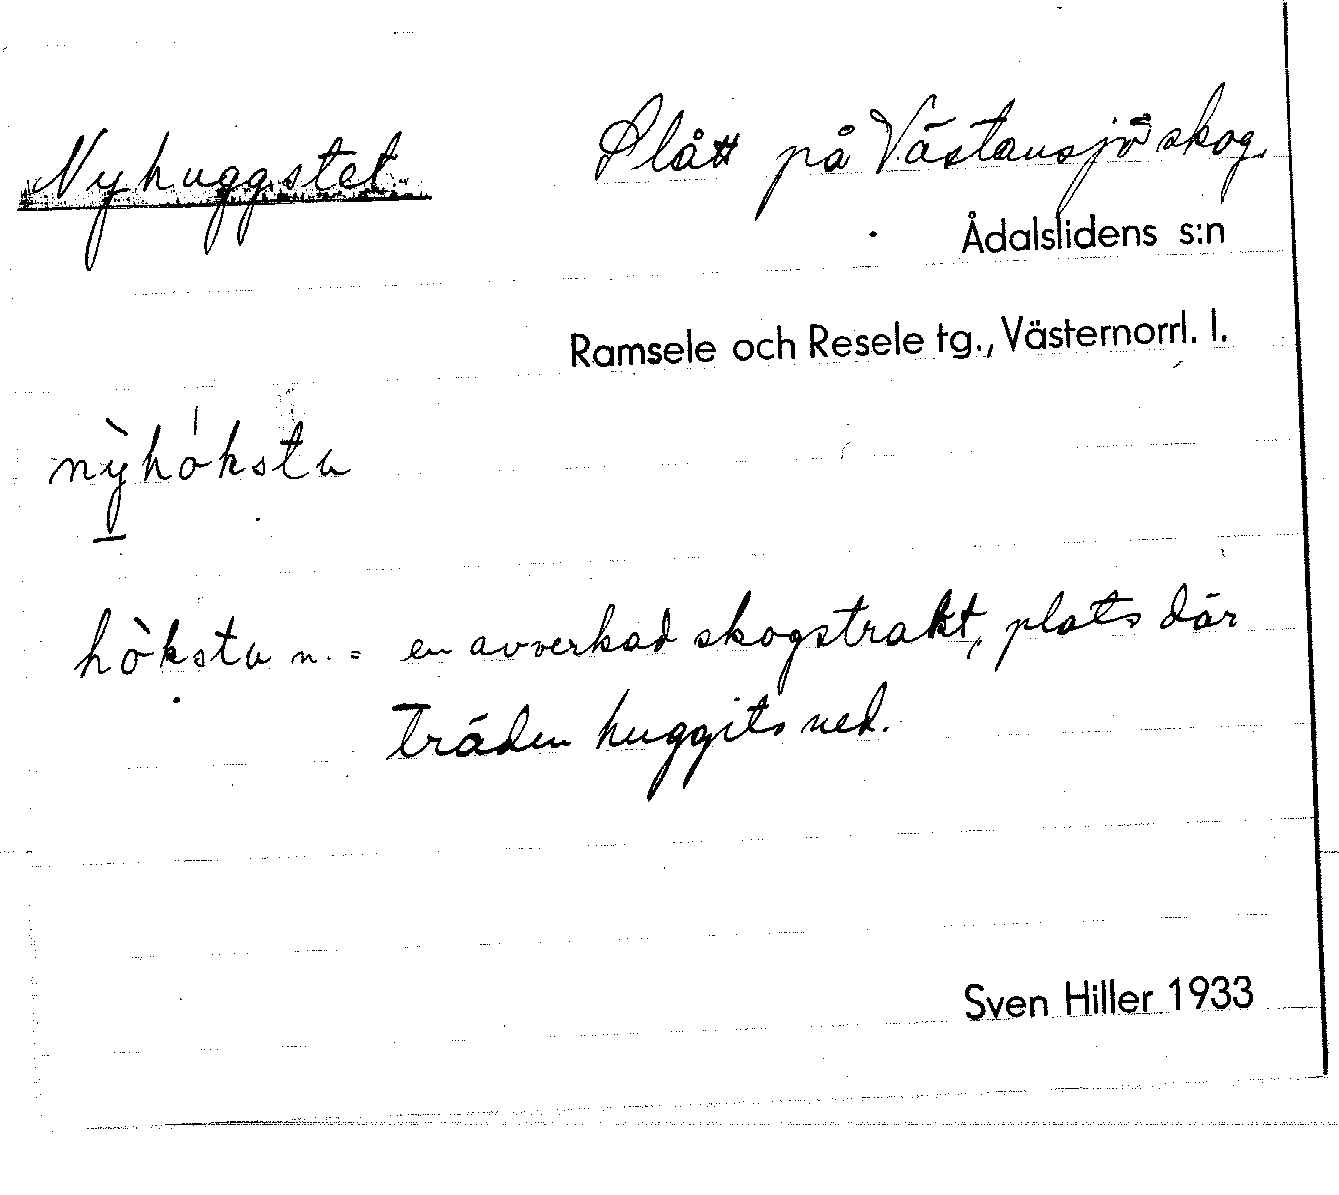 Nyhuggstet
Slått på Västansjö skog.
Ådalslidens s:n
Ramsele och Resele tg., Västernorrl. l.
nỳhóksta
hòksta n. = en avverkad skogstrakt, plats där
träden huggits ned.
Sven Hiller 1933